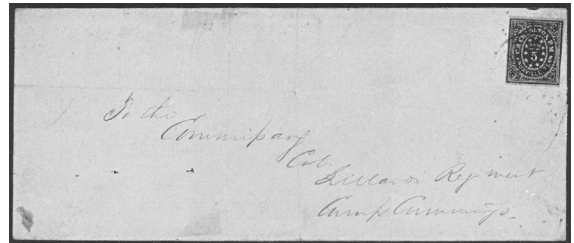 5
To the
Commissary
Col.
Lillards Regiment
Camp Cummings.